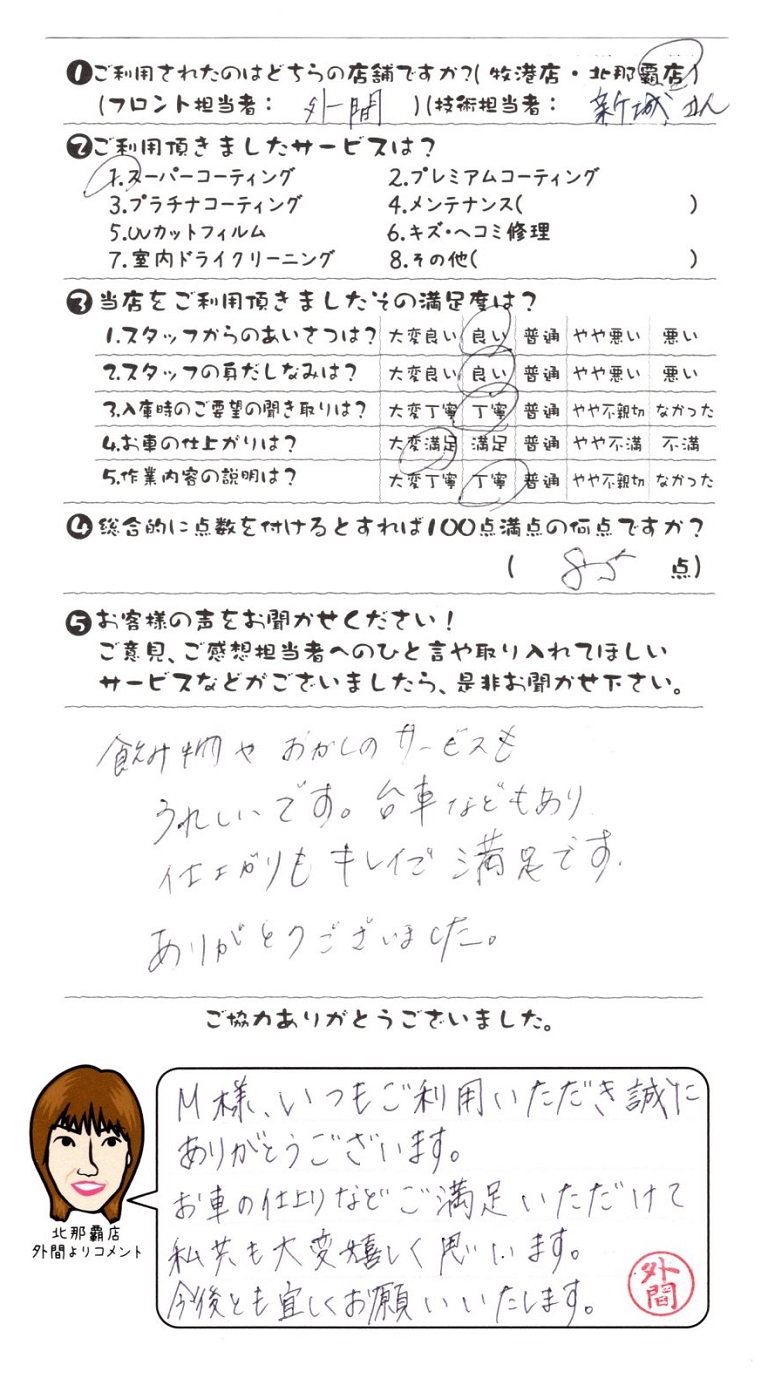 ❶ご利用されたのはどちらの店舗ですか?(牧港店・北那覇店)
(フロント担当者: 外間 )(技術担当者: 新城さん
❷ご利用頂きましたサービスは?
1.スーパーコーティング 2.プレミアムコーティング
3.プラチナコーティング 4.メンテナンス( )
5.UVカットフィルム 6.キズ・ヘコミ修理
7.室内ドライクリーニング 8.その他( )
❸当店をご利用頂きましたその満足度は?
1.スタッフからのあいさつは? 大変良い 良い 普通 やや悪い 悪い
2.スタッフの身だしなみは? 大変良い 良い 普通 やや悪い 悪い
3.入庫時のご要望の聞き取りは? 大変丁寧 丁寧 普通 やや不親切 なかった
4.お車の仕上がりは? 大変満足 満足 普通 やや不満 不満
5.作業内容の説明は? 大変丁寧 丁寧 普通 やや不親切 なかった
❹総合的に点数を付けるとすれば100点満点の何点ですか?
( 85 点)
❺お客様の声をお聞かせください!
ご意見、ご感想担当者へのひと言や取り入れてほしい
サービスなどがございましたら、是非お聞かせ下さい。
飲み物や おかしのサービスも
うれしいです。台車などもあり
仕上がりもキレイで 満足です.
ありがとうございました。
ご協力ありがとうございました。
M様、いつもご利用いただき誠に
ありがとうございます。
お車の仕上りなどご満足いただけて
私共も大変嬉しく思います。
今後とも宜しくお願いいたします。
外間
北那覇店
外間よりコメント